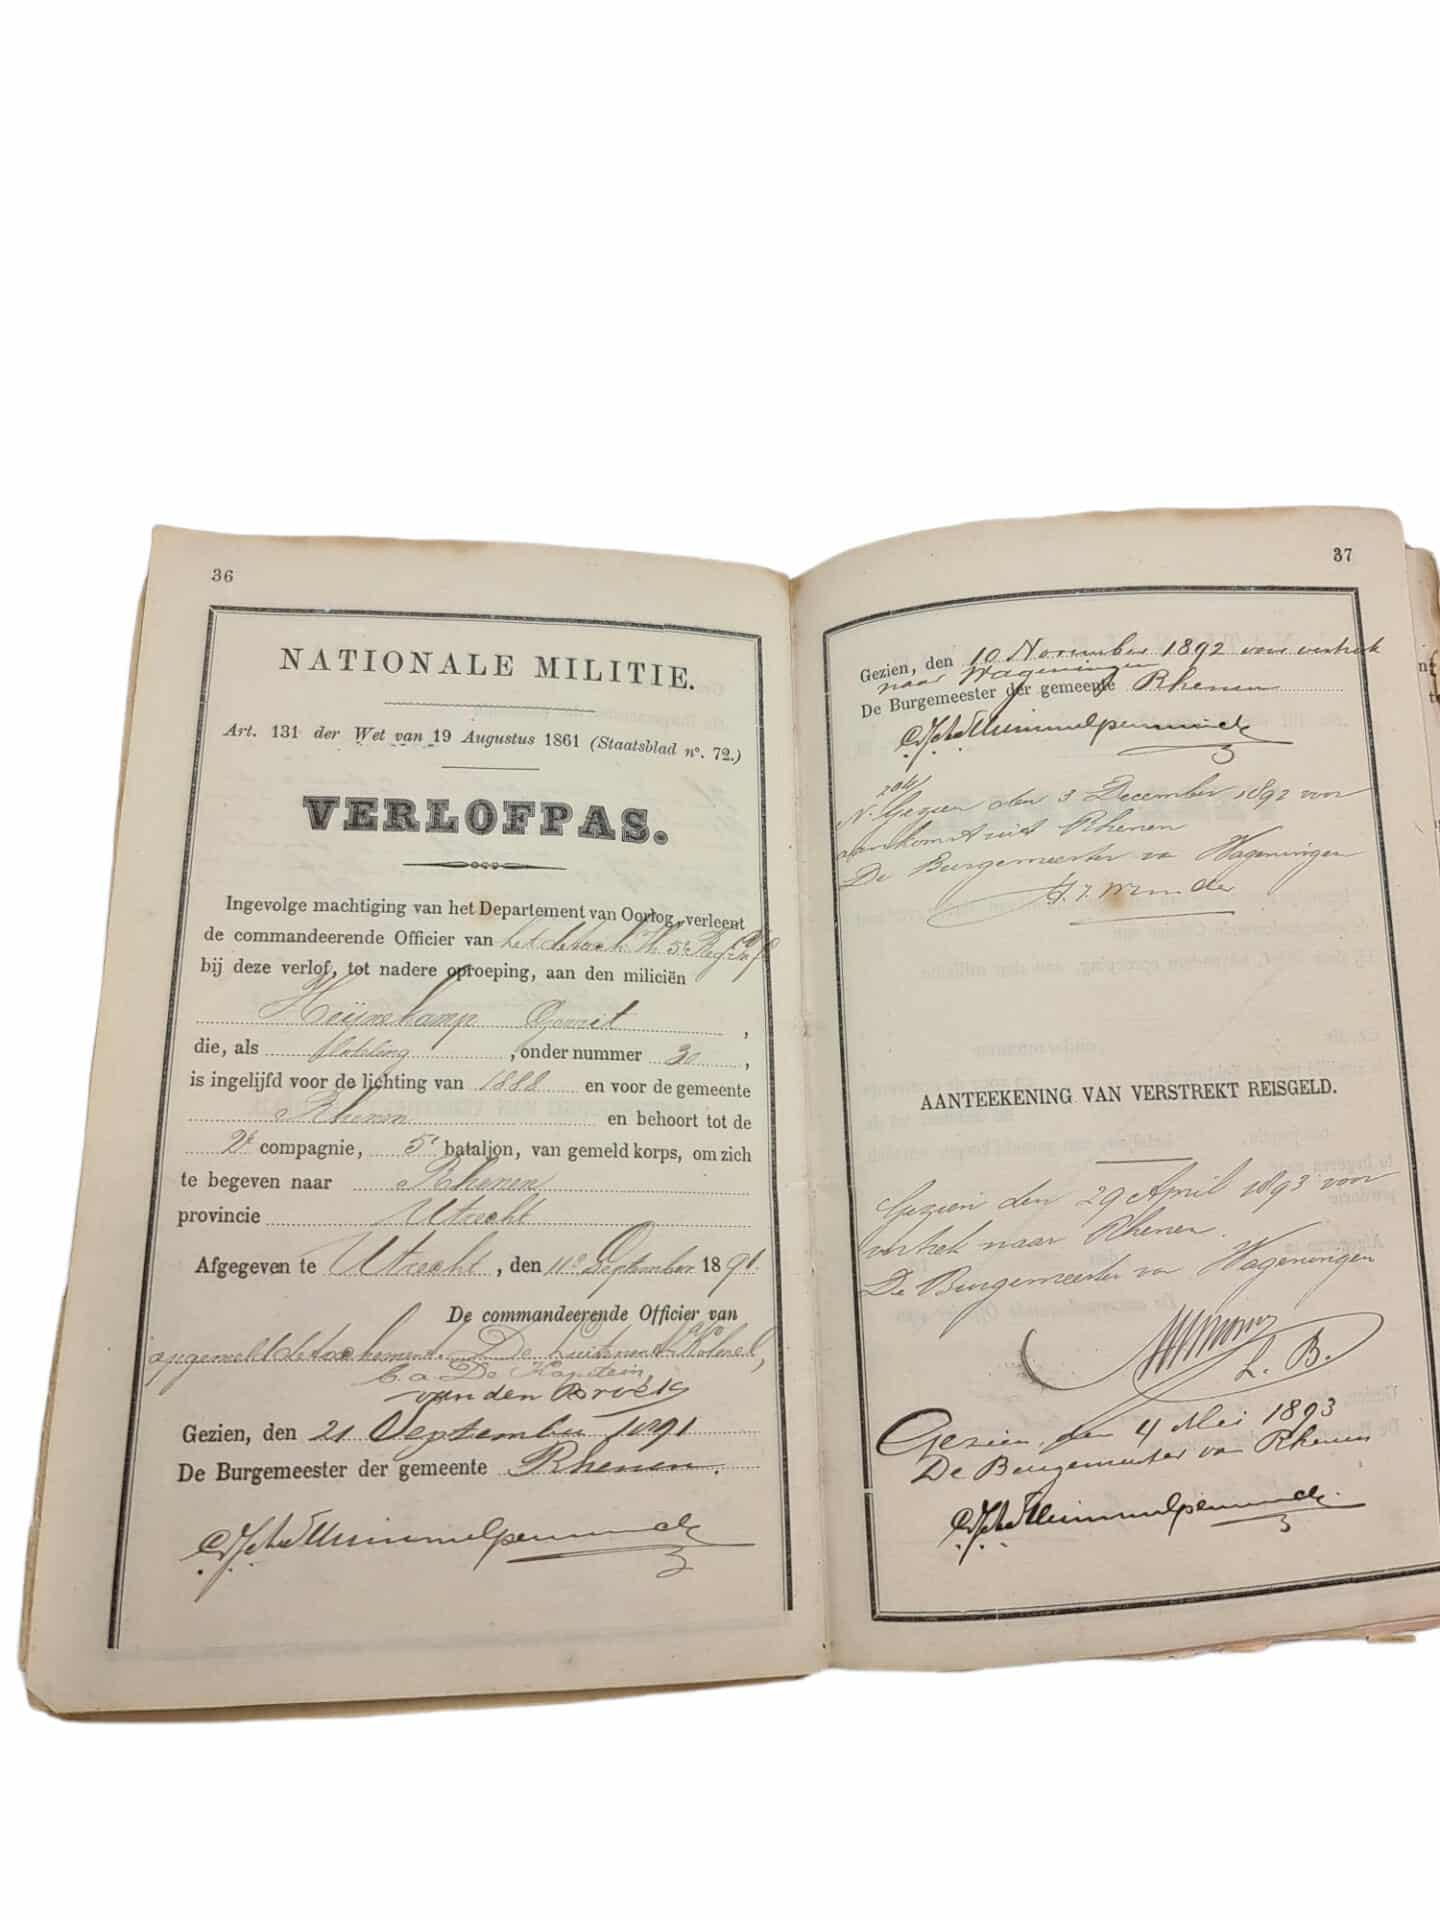 36
NATIONALE MILITIE.
Art. 131 der Wet van 19 Augustus 1861 (Staatsblad nº. 72.)
VERLOFPAS.
Ingevolge machtiging van het Departement van Oorlog, verleent
de commandeerende Officier van het detach. 5e Reg.
bij deze verlof, tot nadere oproeping, aan den milicien
Heijnekamp Gerrit,
die, als loteling, onder nummer 30,
is ingelijfd voor de lichting van 1888 en voor de gemeente
Rhenen en behoort tot de
2e compagnie, 5e bataljon, van gemeld korps, om zich
te begeven naar Rhenen
provincie Utrecht
Afgegeven te Utrecht, den 11e September 1891.
De commandeerende Officier van
opgemeld detachement. De Luitenant Kolonel,
De Kapitein,
van den Broek
Gezien, den 21 September 1891
De Burgemeester der gemeente Rhenen.
37
Gezien, den 10 November 1892 voor vertrek
naar Wageningen
De Burgemeester der gemeente Rhenen
Gezien den 3 December 1892 voor
aankomst uit Rhenen
De Burgemeester van Wageningen
AANTEEKENING VAN VERSTREKT REISGELD.
Gezien den 29 April 1893 voor
vertrek naar Rhenen.
De Burgemeester van Wageningen
L. B.
Gezien den 4 Mei 1893
De Burgemeester van Rhenen